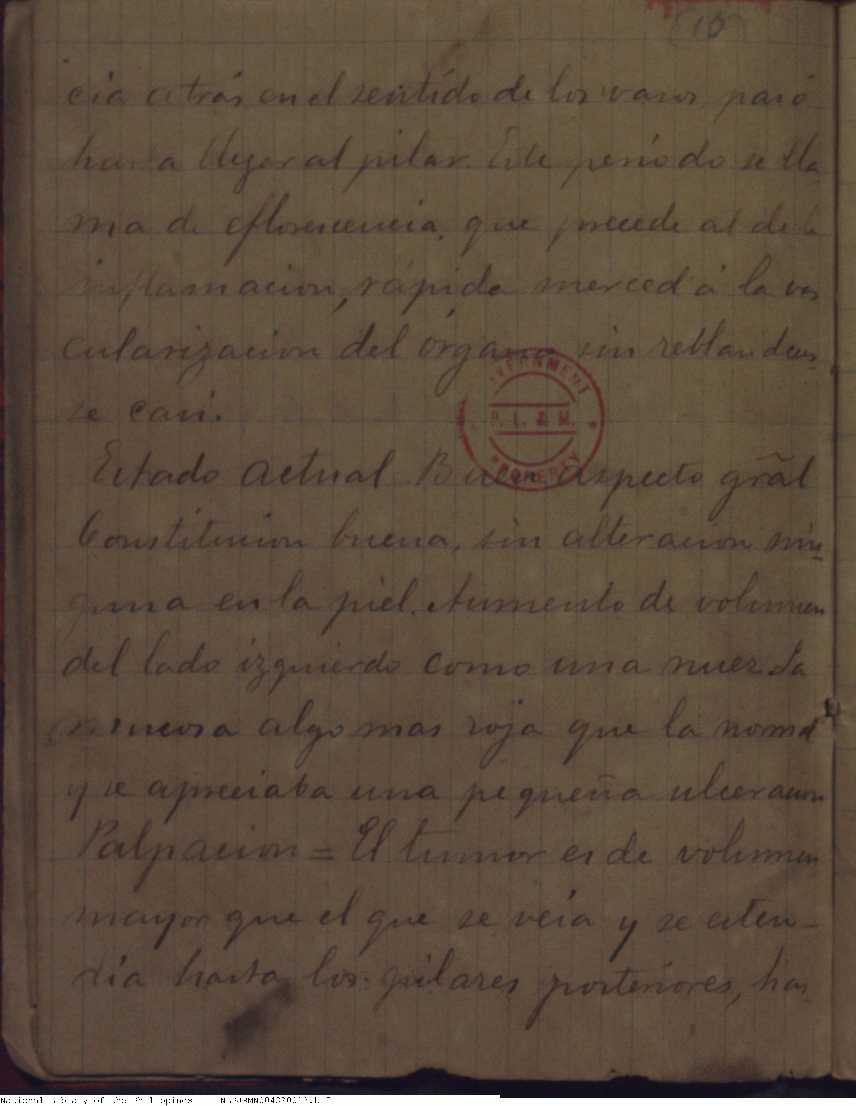 10
cia atrás en el sentido de los vasos, pasó
hasta llegar al pilar. Este período se lla
ma de eflorescencia, que precede al de la
inflamacion, rápida merced á la vas
cularizacion del órgano sin reblandecer
se casi.
Estado actual. Buen aspecto gr̃al
Constitucion buena, sin alteracion nin
guna en la piel. Aumento de volumen
del lado izquierdo como una nuez. La
mucosa algo mas roja que la normal
y se apreciaba una pequeña ulceracion
Palpacion = El tumor es de volumen
mayor que el que se veía y se esten-
día hasta los pilares posteriores, has
GOVERNMENT
P. L. & M.
PROPERTY
National Library of the Philippines